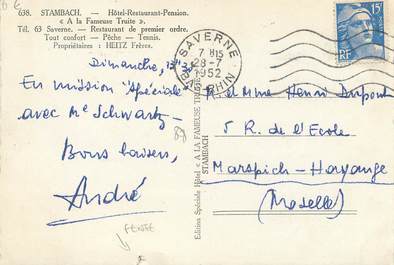 638. STAMBACH. — Hôtel-Restaurant-Pension.
« A la Fameuse Truite ».
Tél. 63 Saverne. — Restaurant de premier ordre.
Tout confort — Pêche — Tennis.
Propriétaires : HEITZ Frères.
Dimanche,
En mission "Spéciale"
avec Me Schwartz -
Bons baisers,
André
FENTE
Edition Spéciale Hôtel « A LA FAMEUSE TRUITE »
STAMBACH
SAVERNE
7 H15
28-7
1952
RHIN
15F
RF
M. et Mme Henri Dupont
5 R. de l'Ecole
Marspich-Hayange
(Moselle)